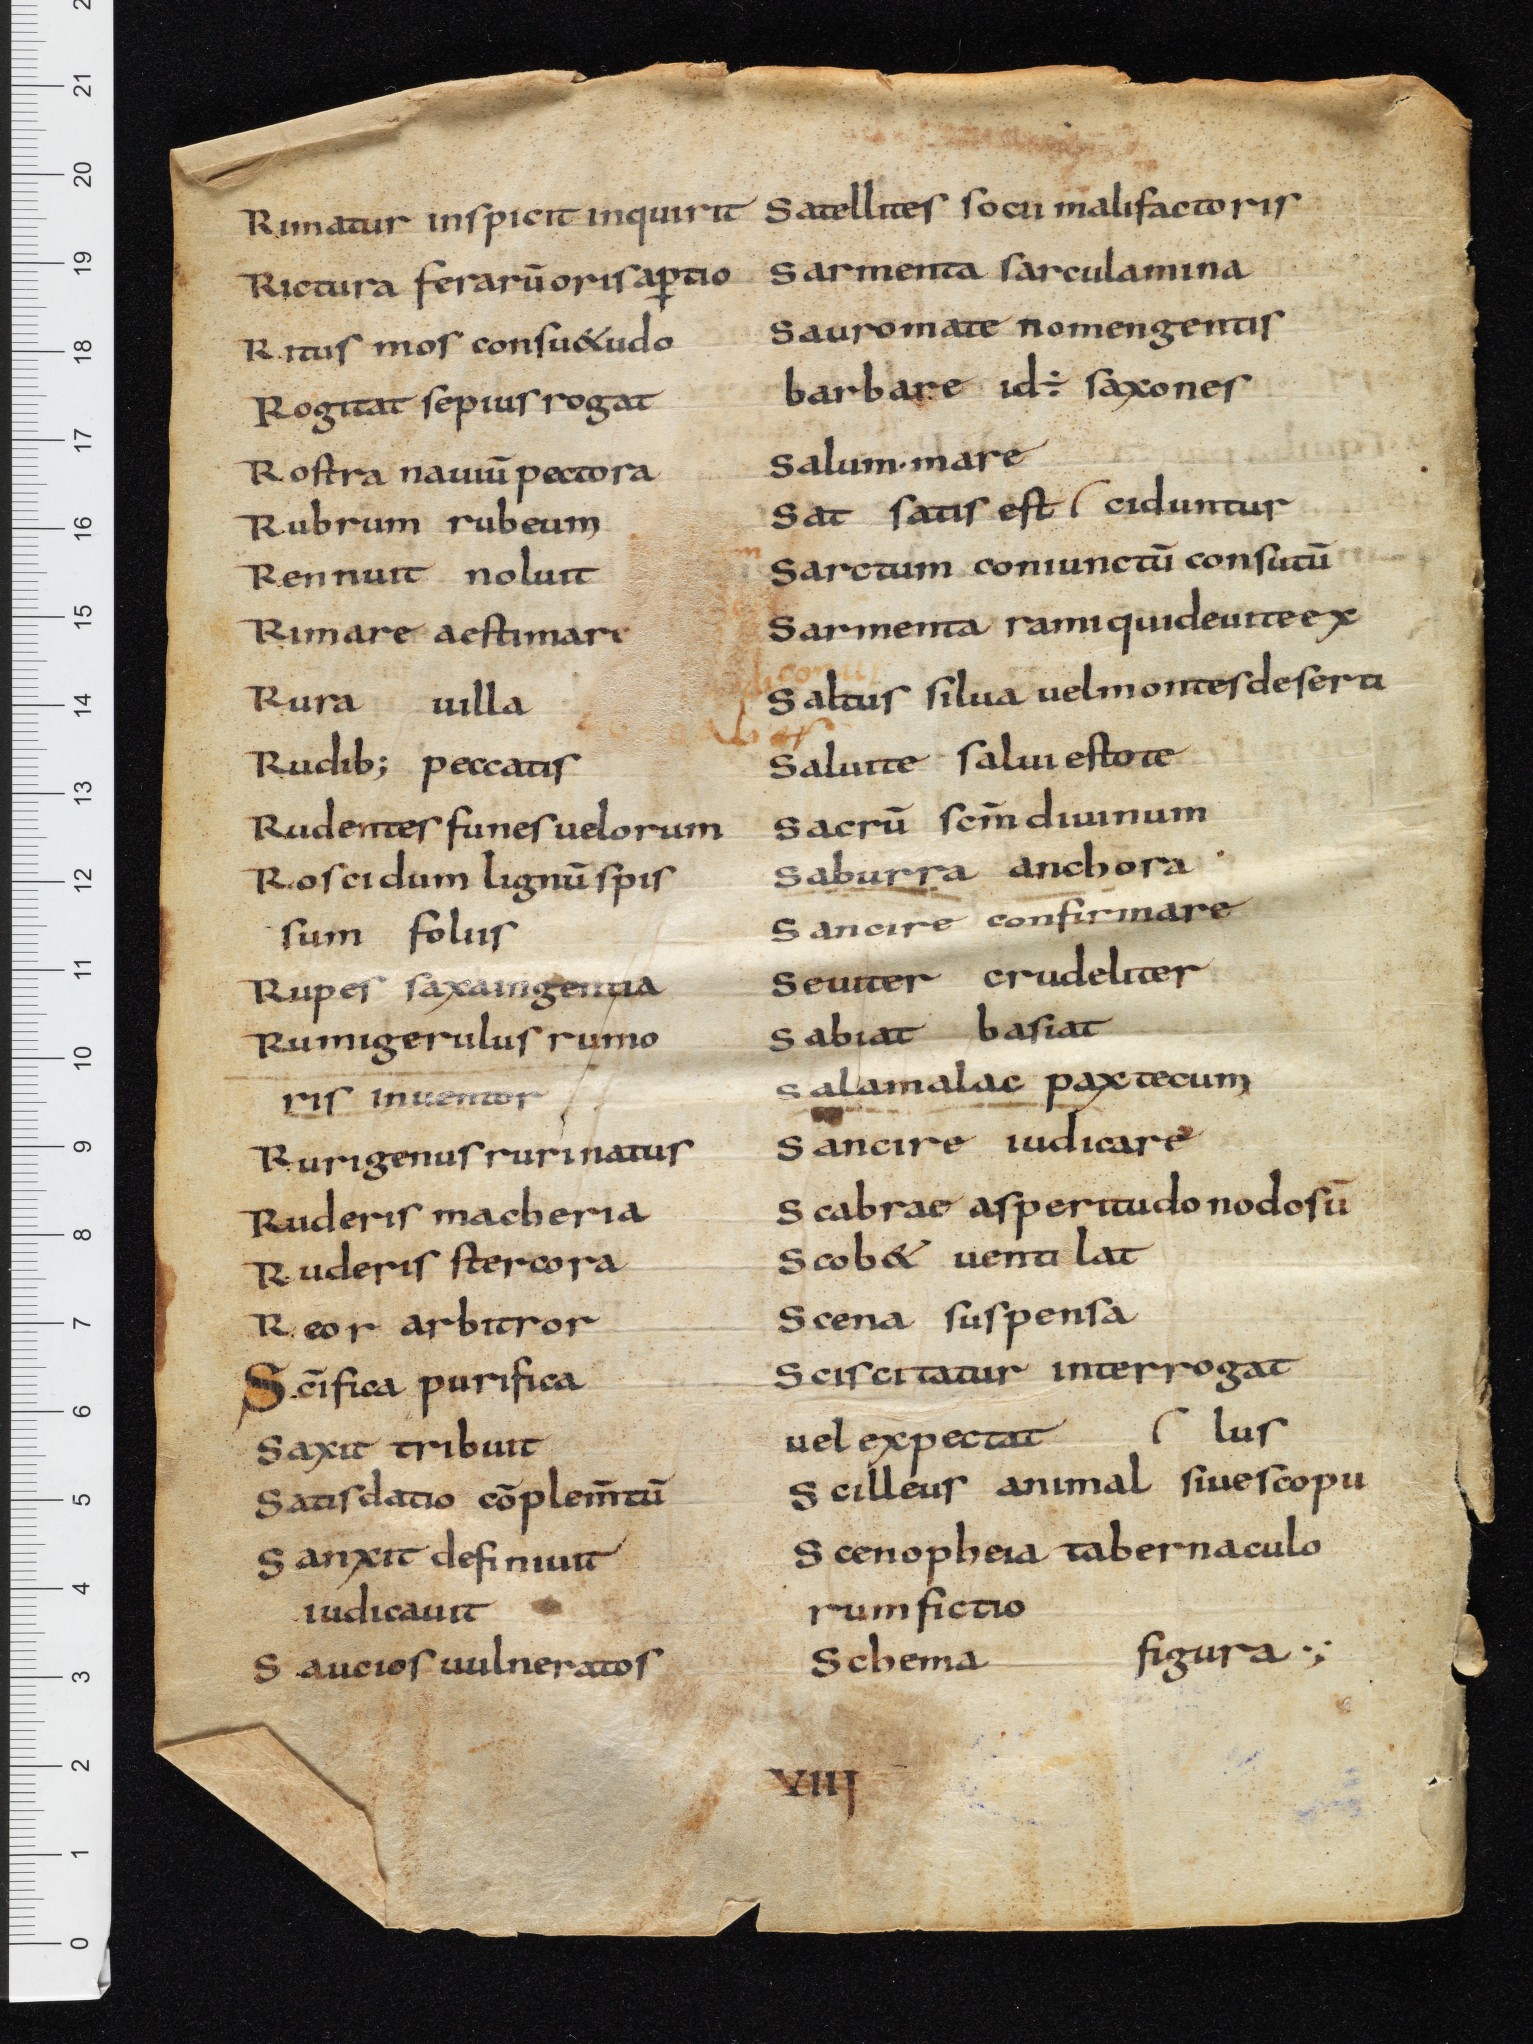 Rimatur inspicit inquirit
Rictura ferarū oris aꝑtio
Ritus mos consu&udo
Rogitat sepius rogat
Rostra nauiū pectora
Rubrum rubeum
Rennuit noluit
Rimare aestimare
Rura uilla
Rudib; peccatis
Rudentes funes uelorum
Roscidum lignū spis
sum foliis
Rupes saxa ingentia
Rumigerulus rumo
ris inuentor
Rurigenus ruri natus
Ruderis macheria
Ruderis stercora
Reor arbitror
Sc̄ifica purifica
Saxit tribuit
Satisdatio cōplem̄tū
Sanxit definiuit
iudicauit
Saucios uulneratos
Satellites socii malifactoris
Sarmenta sarculamina
Sauromate nomen gentis
barbare id÷ saxones
Salum·mare
Sat satis est ( ciduntur
Sarctum coniunctū consutū
Sarmenta rami qui de uite ex
Saltus silua uel montes deserti
Saluite salui estote
Sacrū sc̄m diuinum
Saburra anchora
Sancire confirmare
Seuiter crudeliter
Sabiat basiat
Salamalac pax tecum
Sancire iudicare
Scabrae asperitudo nodosū
Scob& uentilat
Scena suspensa
Sciscitatur interrogat
uel expectat ( lus
Scilleus animal siue scopu
Scenopheia tabernaculo
rum fictio
Schema figura :;
VIIJ
0 1 2 3 4 5 6 7 8 9 10 11 12 13 14 15 16 17 18 19 20 21